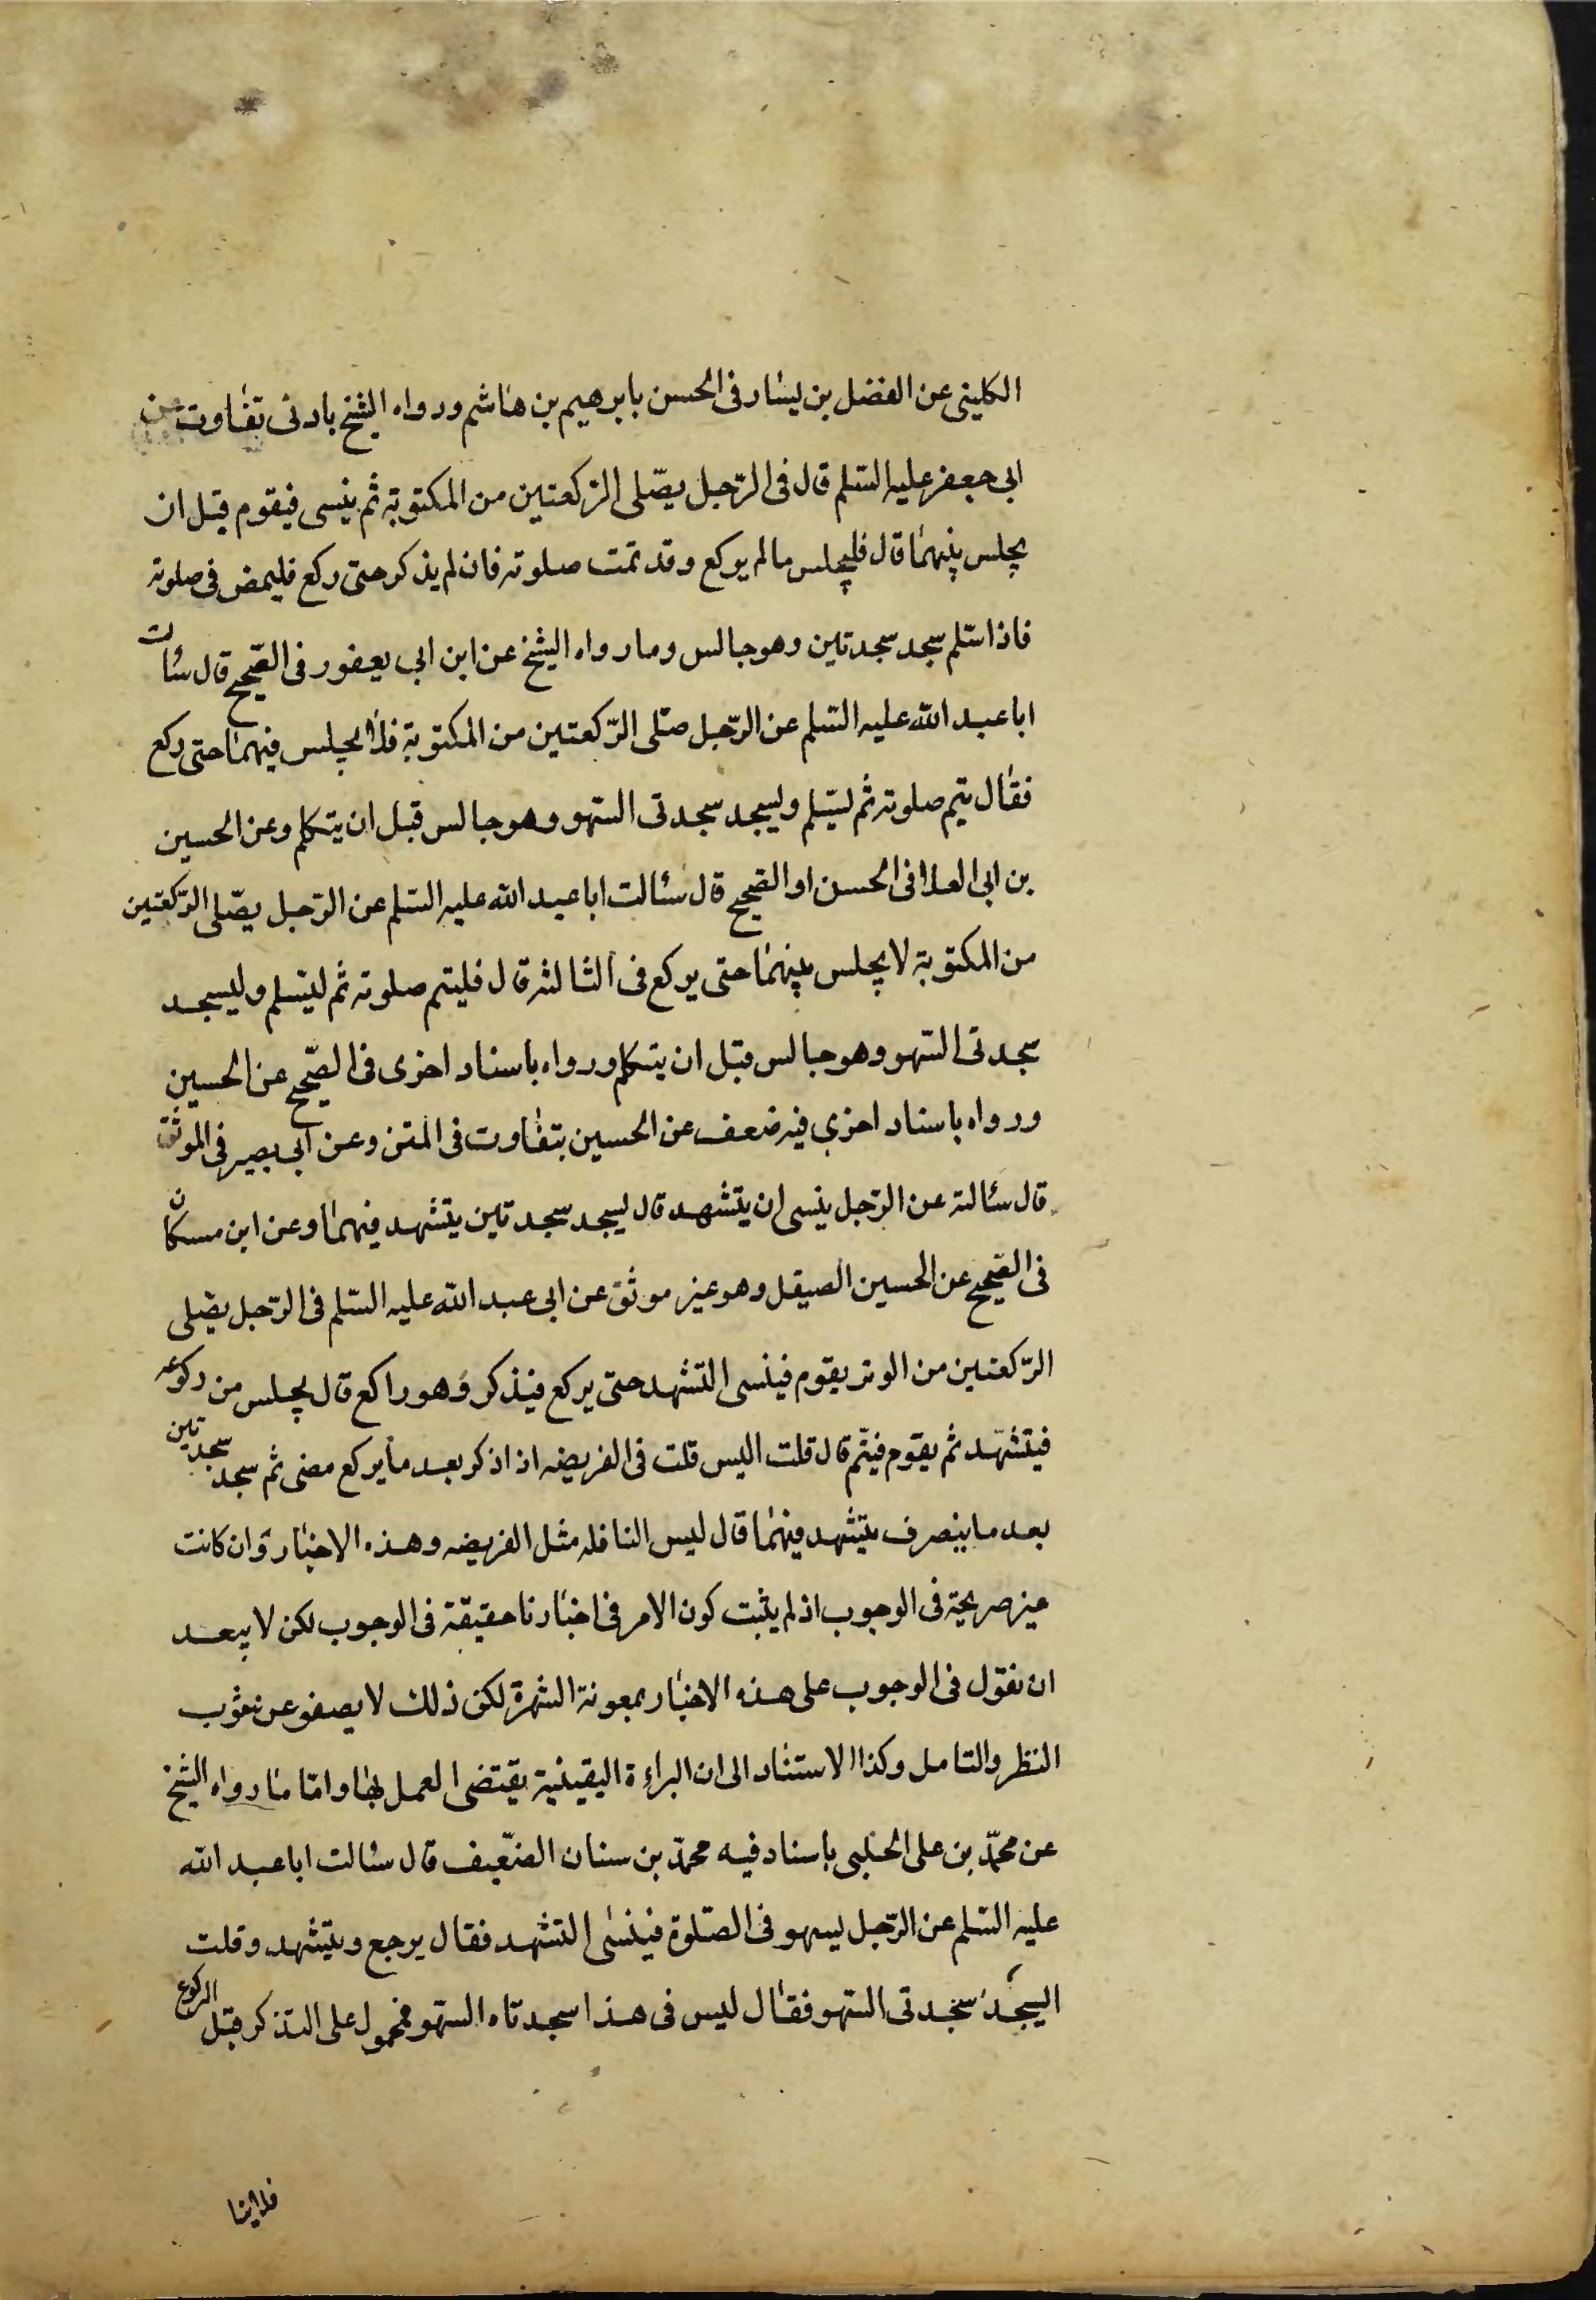 الكلينى عن الفضل بن يسار فى الحسن بابرهيم بن هاشم ورواه الشيخ بادنى تفاوت عن
ابى جعفر عليه السّلم قال فى الرّجل يصلّى الركعتين من المكتوبة ثم ينسى فيقوم قبل ان
يجلس بينهما قال فليجلس مالم يركع وقد تمت صلوته فان لم يذكر حتى ركع فليمض فى صلوته
فاذا سلم سجد سجدتين وهو جالس وما رواه الشيخ عن ابن ابى يعفور فى الصّحيح قال سئالت
ابا عبد الله عليه السّلم عن الرّجل صلّى الرّكعتين من المكتوبة فلا يجلس فيهما حتى ركع
فقال يتم صلوته ثم ليسلم وليسجد سجدتى السّهو وهو جالس قبل ان يتكلم وعن الحسين
بن ابى العلا فى الحسن او الصّحيح قال سئالت ابا عبد الله عليه السّلم عن الرّجل يصلّى الرّكعتين
من المكتوبة لا يجلس بينهما حتى يركع فى الثالثه قال فليتم صلوته ثم ليسلم وليسجد
سجدتى السّهو وهو جالس قبل ان يتكلم ورواه باسناد اخرى فى الصّحيح عن الحسين
ورواه باسناد اخرى فيه ضعف عن الحسين بتفاوت فى المتن وعن ابى بصير فى الموثق
قال سئالته عن الرّجل ينسى ان يتشهد قال ليسجد سجدتين يتشهد فيهما وعن ابن مسكان
فى الصّحيح عن الحسين الصيقل وهو غير موثق عن ابى عبد الله عليه السّلم فى الرّجل يصلّى
الرّكعتين من الوتر يقوم فينسى التشهد حتى يركع فيذكر وهو راكع قال يجلس من ركوعه
فيتشهّد ثم يقوم فيتّم قال قلت اليس قلت فى الفريضه اذا ذكر بعد ما يركع مضى ثم سجد سجدتين
بعد ما ينصرف يتشهد فيهما قال ليس النافله مثل الفريضه وهذه الاخبار وان كانت
غير صريحة فى الوجوب اذ لم يثبت كون الامر فى اخبارنا حقيقة فى الوجوب لكن لا يبعد
ان نقول فى الوجوب على هذه الاخبار بمعونة الشهرة لكن ذلك لا يصفو عن شوب
النظر والتامل وكذا الاستناد الى ان البراءة اليقينية يقتضى العمل بها واما ما رواه الشيخ
عن محمّد بن على الحلبى باسناد فيه محمّد بن سنان الضّعيف قال سئالت ابا عبد الله
عليه السّلم عن الرّجل يسهو فى الصّلوة فينسى التشهد فقال يرجع ويتشهد وقلت
ايسجد سجدتى السّهو فقال ليس فى هذا سجدتاه السّهو فمحمول على التذكر قبل الركوع